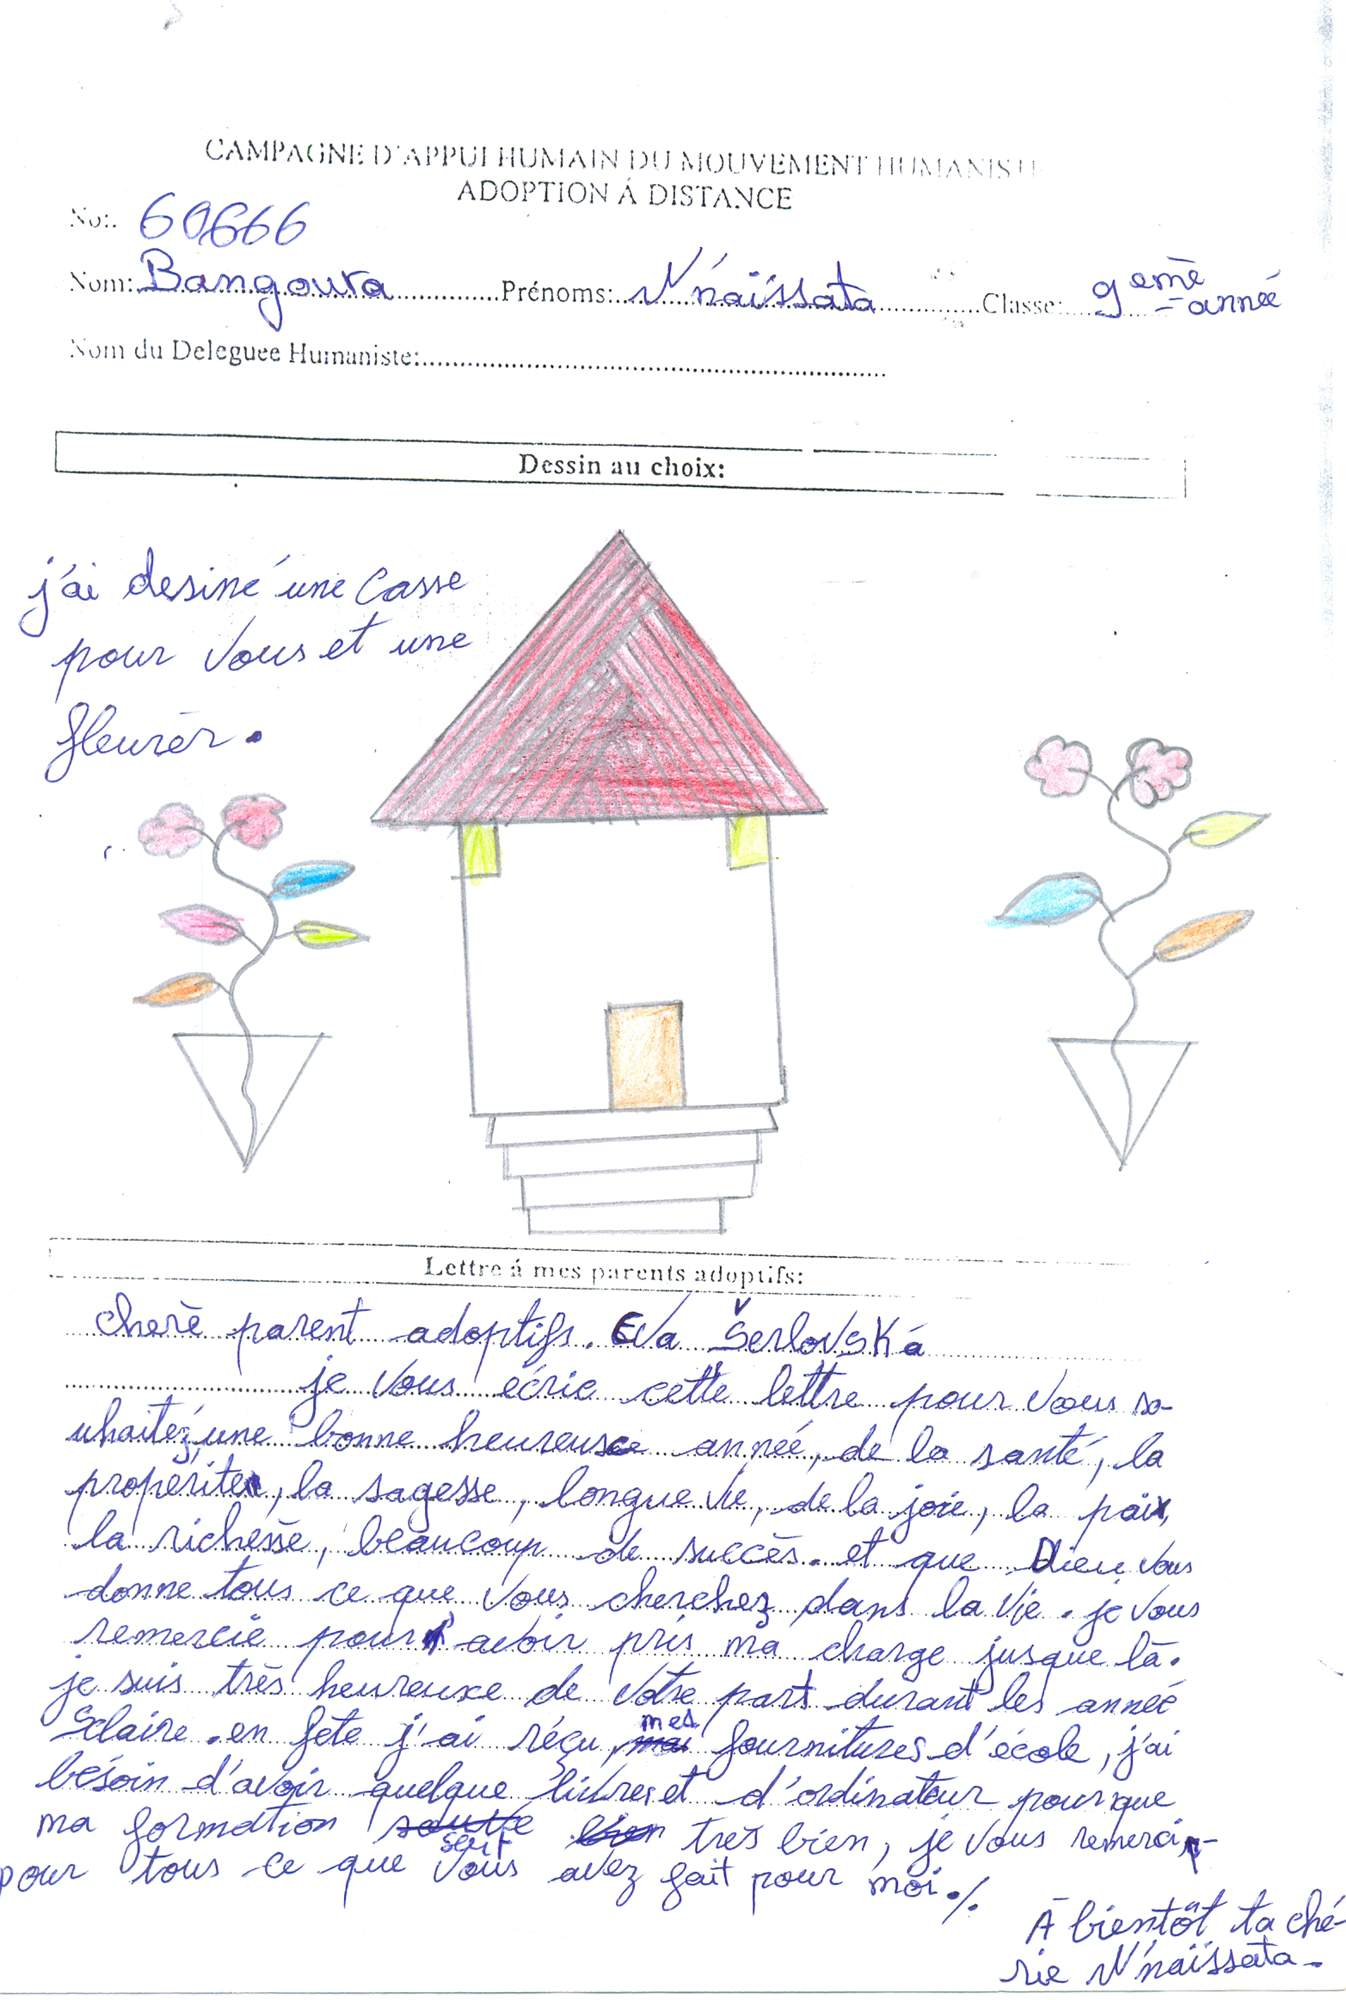 CAMPAGNE D'APPUI HUMAIN DU MOUVEMENT HUMANISTE
ADOPTION Á DISTANCE
No:. 60666
Nom: Bangoura Prénoms: N'naïssata Classe: 9 emè année
Nom du Deleguee Humaniste:
Dessin au choix:
j'ai desiné une casse
pour vous et une
fleurèr.
Lettre á mes parents adoptifs:
cherè parent adoptifs. Eva Šerlovská
je vous écrie cette lettre pour vous so-
uhaitez, une bonne heureuse année, de la santé, la
properite, la sagesse, longue vie, de la joie, la paix,
la richesse, beaucoup de succès. et que Dieu vous
donne tous ce que vous cherchez dans la vie. je vous
remercie pour avoir pris ma charge jusque là.
je suis très heureuxe de votre part durant les année
Sclaire. en fete j'ai réçu, mes fournitures d'école, j'ai
bésoin d'avoir quelque livres et d'ordinateur pour que
ma formation soit très bien, je vous remerci-
pour tous ce que vous avez fait pour moi./.
À bientôt ta ché-
rie N'naïssata-